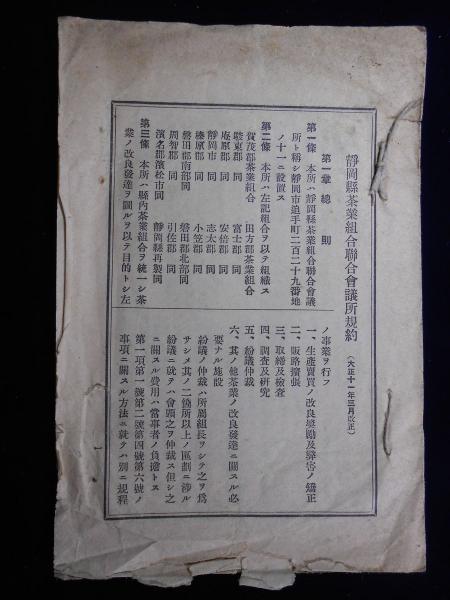 靜岡縣茶業組合聯合會議所規約（大正十一年三月改正）
第一章 總則
第一條 本所ハ靜岡縣茶業組合聯合會議
所ト稱シ靜岡市追手町二百二十九番地
ノ十一ニ設置ス
第二條 本所ハ左記組合ヲ以テ組織ス
賀茂郡茶業組合 田方郡茶業組合
駿東郡 同 富士郡 同
庵原郡 同 安倍郡 同
靜岡市 同 志太郡 同
榛原郡 同 小笠郡 同
磐田郡南部同 磐田郡北部同
周智郡 同 引佐郡 同
濱名郡濱松市同 靜岡縣再製同
第三條 本所ハ縣内茶業組合ヲ統一シ茶
業ノ改良發達ヲ圖ルヲ以テ目的トシ左
ノ事業ヲ行フ
一、生產賣買ノ改良奬勵及弊害ノ矯正
二、販路擴張
三、取締及檢査
四、調査及硏究
五、紛議仲裁
六、其ノ他茶業ノ改良發達ニ關スル必
要ナル施設
紛議ノ仲裁ハ所屬組長ヲシテ之ヲ爲
サシメ其ノ二箇所以上ノ區劃ニ涉ル
紛議ニ就テハ會頭之ヲ仲裁ス但シ之
ニ關スル費用ハ當事者ノ負擔トス
第一項第一號第二號第四號第六號ノ
事項ニ關スル方法ニ就テハ別ニ規程